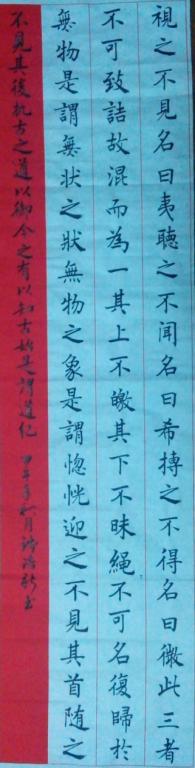 視之不見名曰夷聽之不聞名曰希摶之不得名曰微此三者
不可致詰故混而為一其上不皦其下不昧繩不可名復歸於
無物是謂無状之狀無物之象是謂惚恍迎之不見其首随之
不見其後執古之道以御今之有以知古始是謂道纪 甲午年秋月